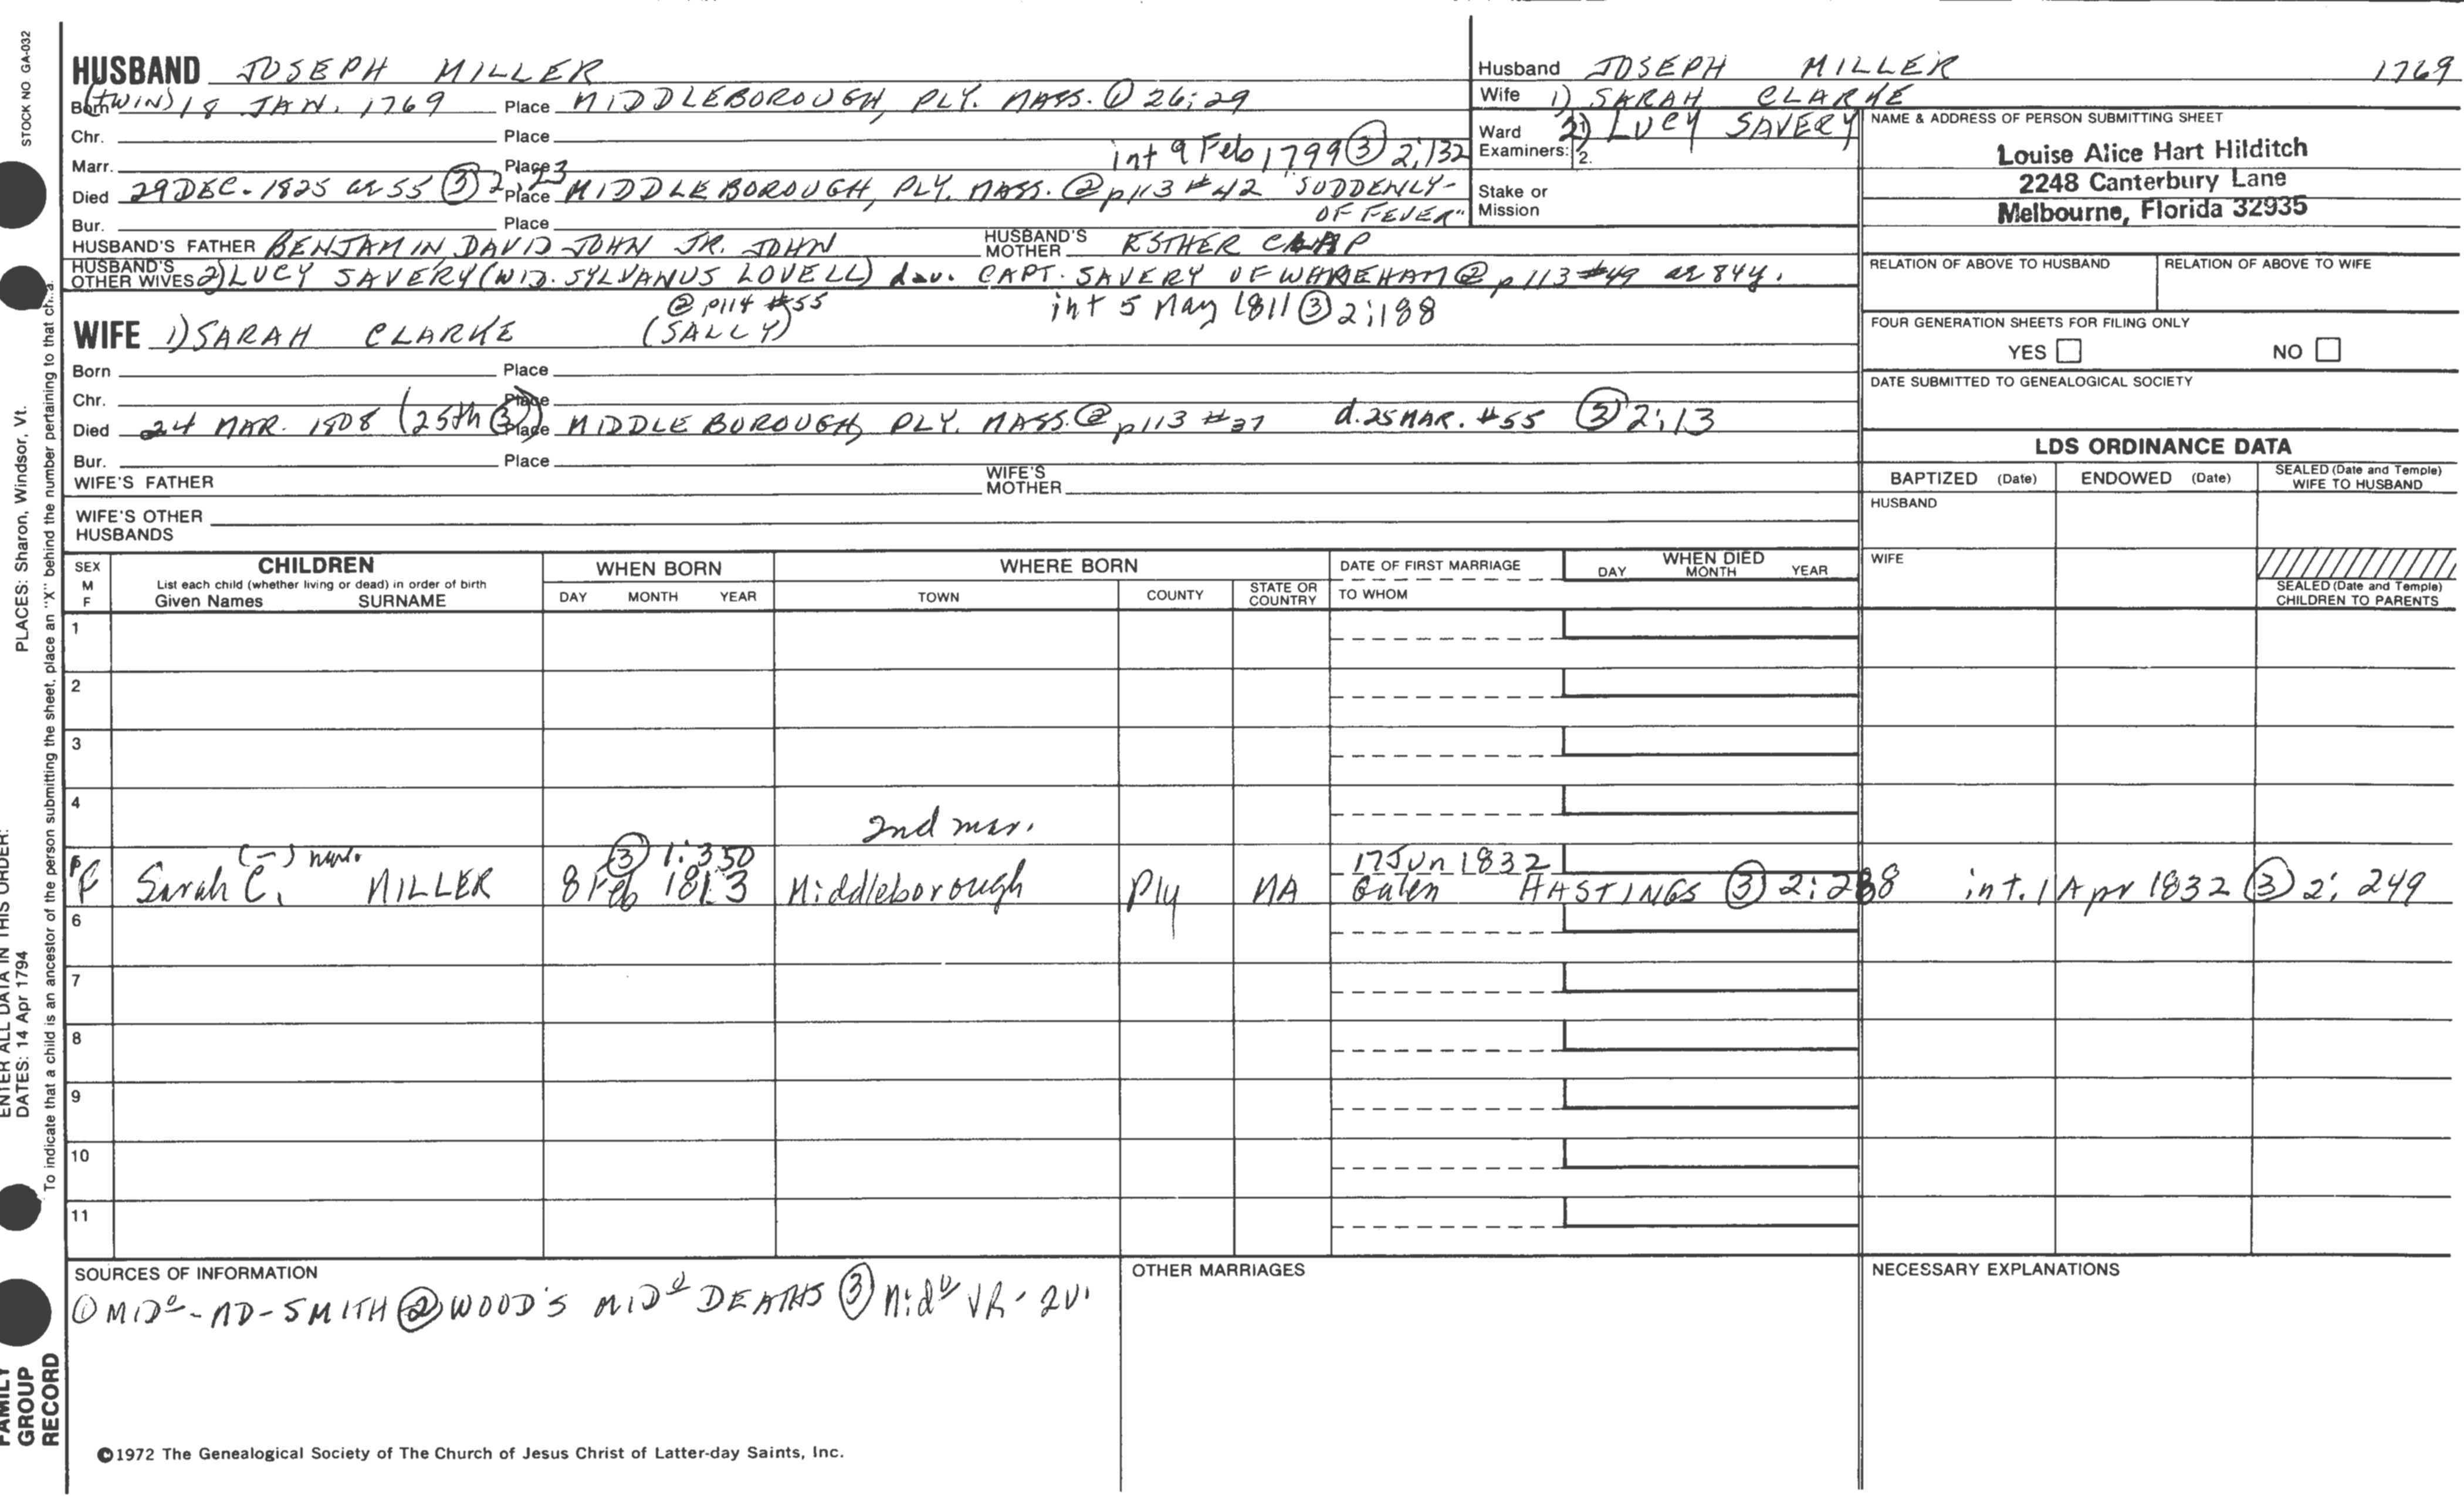 STOCK NO GA-032
HUSBAND JOSEPH MILLER
Born (TWIN) 18 JAN. 1769 Place MIDDLEBOROUGH, PLY. MASS. ① 26:29
Chr. Place
Marr. Place int 9 Feb 1799 ③ 2:132
Died 29 DEC. 1825 ae 55 ③ 2:23 Place MIDDLEBOROUGH, PLY. MASS. ② p113 #42 "SUDDENLY-
OF FEVER"
Bur. Place
HUSBAND'S FATHER BENJAMIN, DAVID JOHN JR. JOHN HUSBAND'S MOTHER ESTHER CLAPP
HUSBAND'S OTHER WIVES 2) LUCY SAVERY (WID. SYLVANUS LOVELL) dau. CAPT. SAVERY OF WAREHAM ② p113 #49 ae 84y.
@ p114 #55 int 5 May 1811 ③ 2:188
WIFE 1) SARAH CLARKE (SALLY)
Born Place
Chr. Place
Died 24 MAR. 1808 (25th ③) Place MIDDLEBOROUGH, PLY. MASS. ② p113 #37 d. 25 MAR. #55 ③ 2:13
Bur. Place
WIFE'S FATHER WIFE'S MOTHER
WIFE'S OTHER HUSBANDS
Husband JOSEPH MILLER 1769
Wife 1) SARAH CLARKE
Ward 2) LUCY SAVERY
Examiners: 1.
2.
Stake or Mission
NAME & ADDRESS OF PERSON SUBMITTING SHEET
Louise Alice Hart Hilditch
2248 Canterbury Lane
Melbourne, Florida 32935
RELATION OF ABOVE TO HUSBAND RELATION OF ABOVE TO WIFE
FOUR GENERATION SHEETS FOR FILING ONLY
YES NO
DATE SUBMITTED TO GENEALOGICAL SOCIETY
LDS ORDINANCE DATA
BAPTIZED (Date) ENDOWED (Date) SEALED (Date and Temple) WIFE TO HUSBAND
HUSBAND
WIFE
SEALED (Date and Temple) CHILDREN TO PARENTS
SEX M F CHILDREN WHEN BORN WHERE BORN DATE OF FIRST MARRIAGE WHEN DIED
List each child (whether living or dead) in order of birth
Given Names SURNAME DAY MONTH YEAR TOWN COUNTY STATE OR COUNTRY TO WHOM DAY MONTH YEAR
1
2
3
4
2nd mar.
(-) ③ 1:350 17 Jun 1832
F Sarah C. MILLER 8 Feb 1813 Middleborough Ply MA Galen HASTINGS ③ 2:288 int. 1 Apr 1832 ③ 2: 249
6
7
8
9
10
11
SOURCES OF INFORMATION
① MIDº-AD-SMITH ② WOOD'S MIDº DEATHS ③ Midº VR-2V.
OTHER MARRIAGES
NECESSARY EXPLANATIONS
©1972 The Genealogical Society of The Church of Jesus Christ of Latter-day Saints, Inc.
PLACES: Sharon, Windsor, Vt.
ENTER ALL DATA IN THIS ORDER:
DATES: 14 Apr 1794
To indicate that a child is an ancestor of the person submitting the sheet, place an "X" behind the number pertaining to that
FAMILY GROUP RECORD